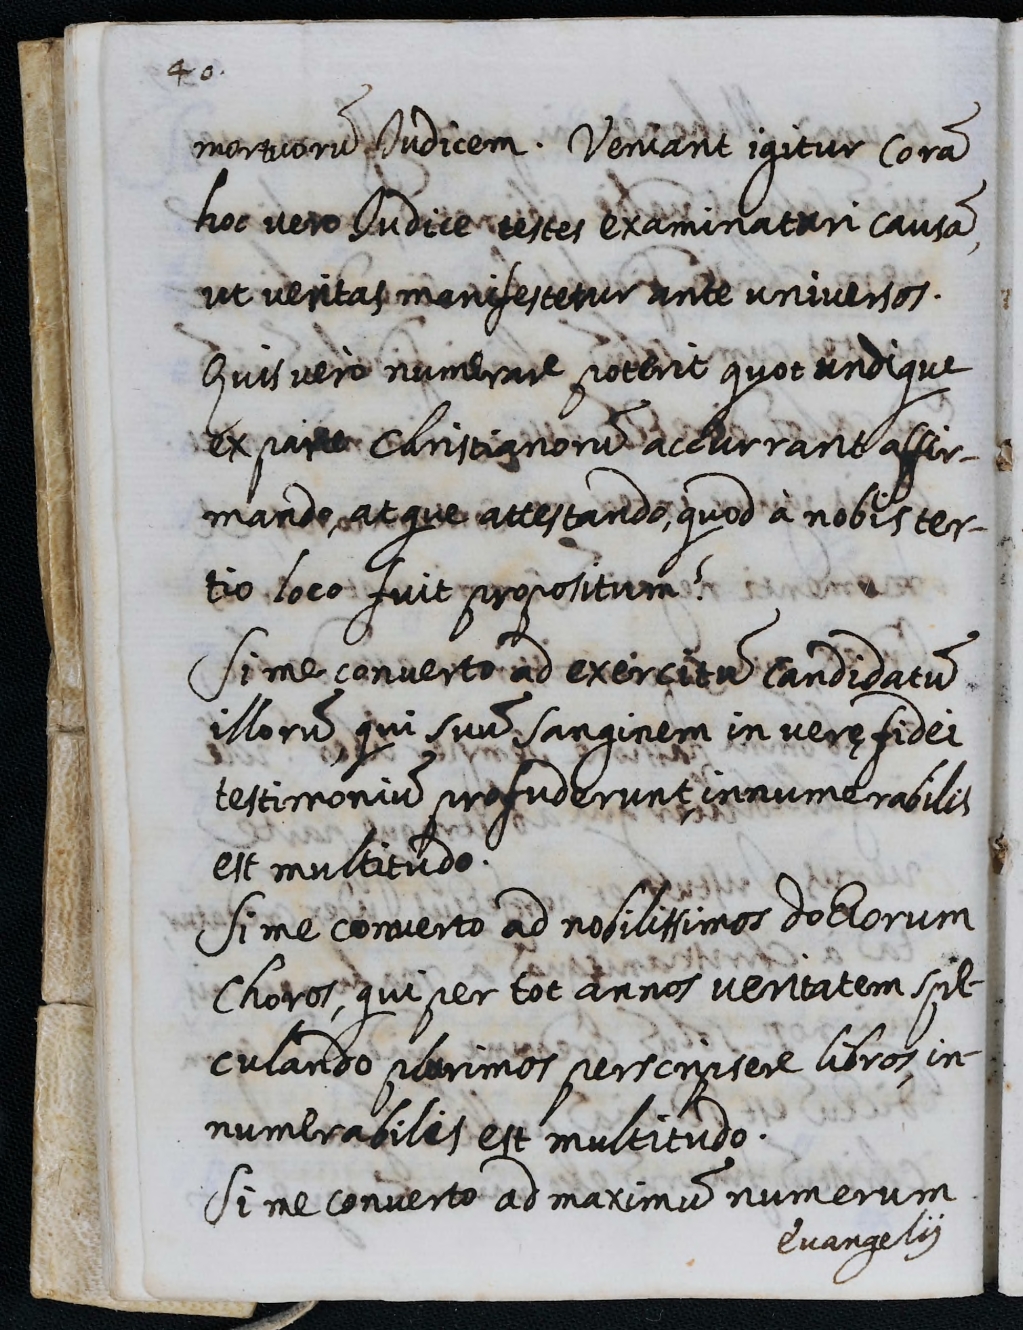 40.
mortuorū Judicem. Veniant igitur corā
hoc vero Judice testes examinaturi causā,
ut veritas manifestetur ante universos.
Quis verò numerare poterit quot undique
ex parte Christianorū accurrant affir-
mando, atque attestando, quod à nobis ter-
tio loco fuit propositum?
Si me converto ad exercitū candidatū
illorū, qui suū sanginem in verę fidei
testimoniū profuderunt innumerabilis
est multitudo.
Si me converto ad nobilissimos doctorum
Choros, qui per tot annos veritatem spe-
culando plurimos perscripsere libros, in-
numerabilis est multitudo.
Si me converto ad maximū numerum
Evangelij